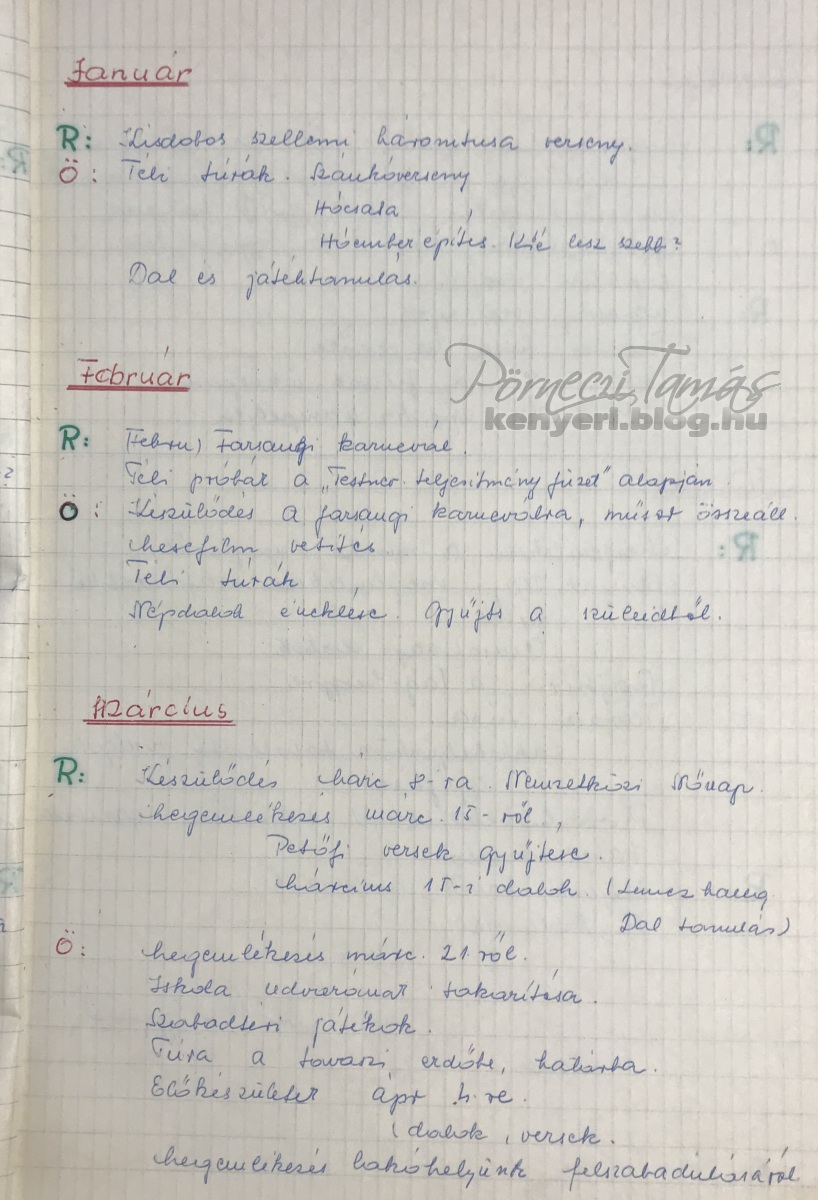 Január
R: Kisdobos szellemi háromtusa verseny.
Ö: Téli túrák. Szánkóverseny
Hócsata,
Hóember építés. Kié lesz szebb?
Dal és játéktanulás.
Február
Pörneczi Tamás
kenyeri.blog.hu
R: Febru) Farsangi karnevál.
Téli próbák a „Testner. teljesítmény füzet" alapján.
Ö: Készülődés a farsangi karneválra, műsor összeáll.
Mesefilm vetítés
Téli túrák
Népdalok éneklése. Gyűjts a szüleidtől.
Március
R: Készülődés Márc 8-ra. Nemzetközi Nőnap.
Megemlékezés márc. 15-ről,
Petőfi versek gyűjtése.
Március 15-i dalok. (Lemez hallg.
Dal tanulás)
Ö: Megemlékezés márc. 21. ről.
Iskola udvarának takarítása.
Szabadtéri játékok.
Túra a tavaszi erdőbe, határba.
Előkészület ápr 4.-re.
(dalok, versek.
Megemlékezés lakóhelyünk felszabadulásáról